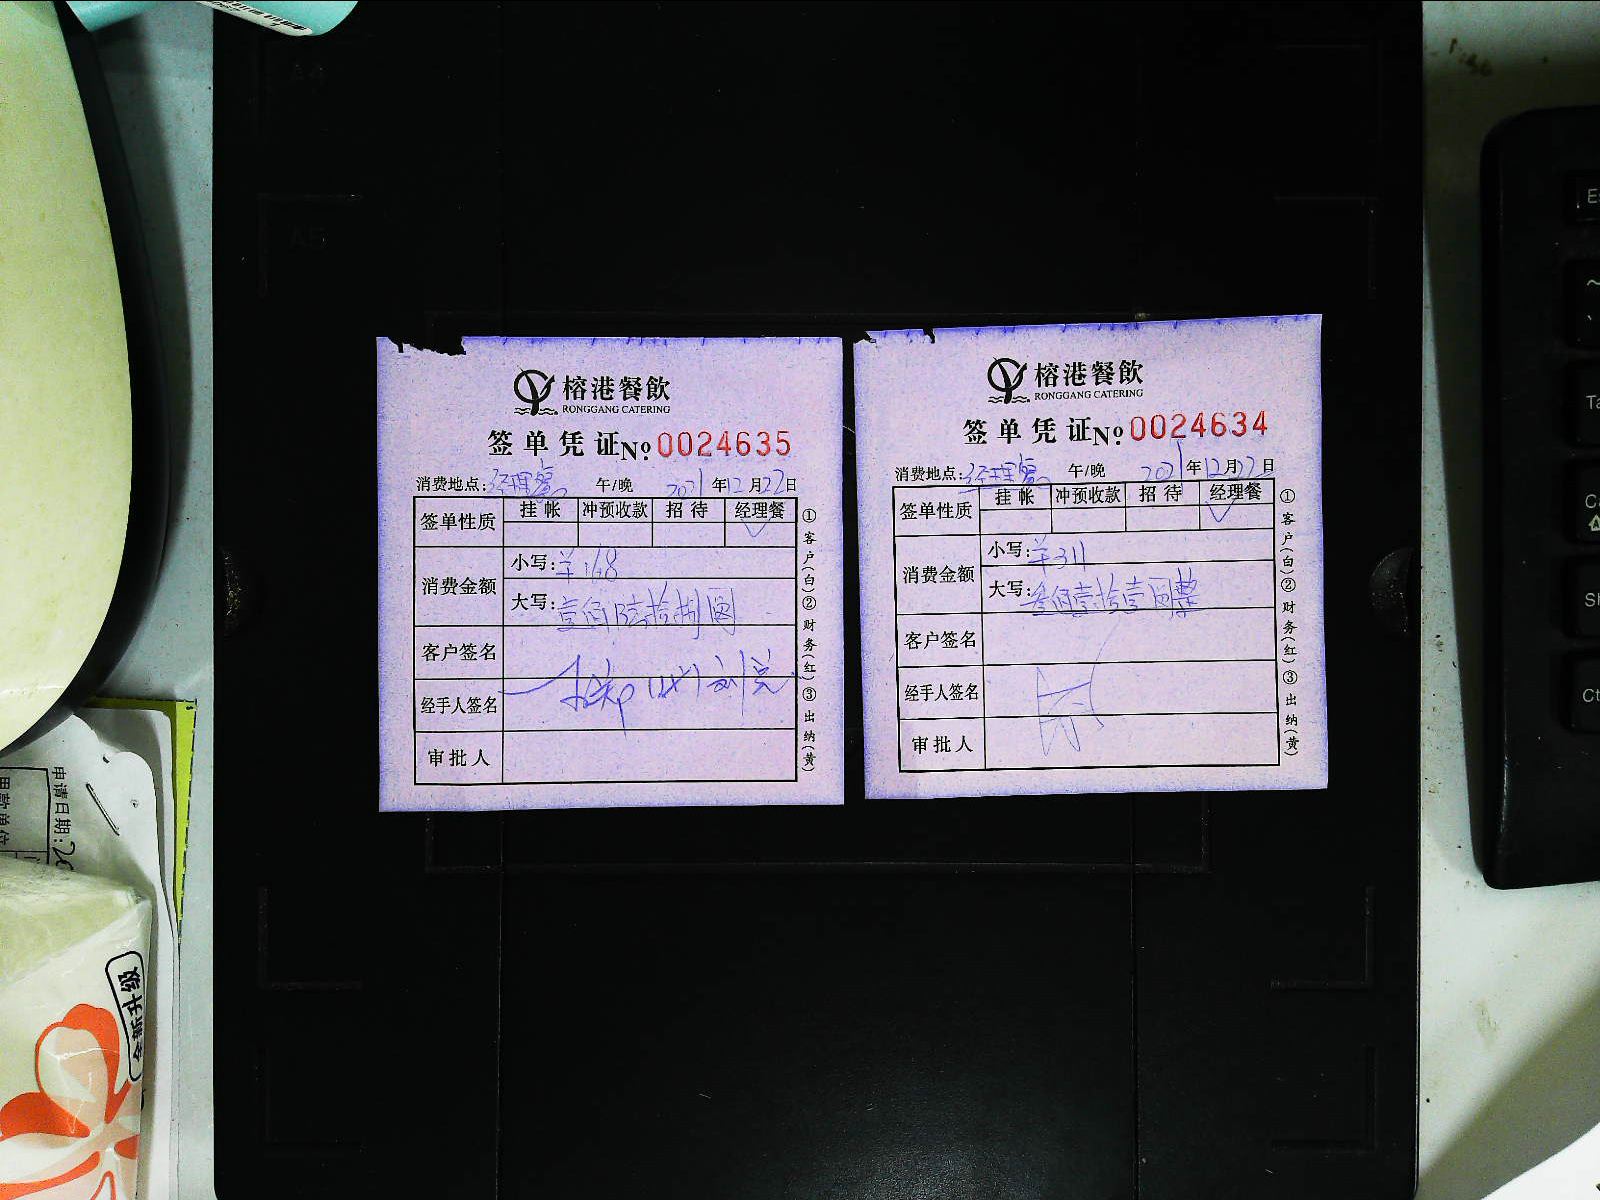 榕港餐飲
RONGGANG CATERING
签单凭证 №0024635
消费地点: 经理餐 午/晚 2021年12月22日
签单性质 挂帐 冲预收款 招待 经理餐
✓
消费金额
小写: 羊168
大写: 壹佰陆拾捌圆
客户签名
经手人签名
审批人
①客户(白)②财务(红)③出纳(黄)
榕港餐飲
RONGGANG CATERING
签单凭证 №0024634
消费地点: 经理餐 午/晚 2021年12月22日
签单性质 挂帐 冲预收款 招待 经理餐
✓
消费金额
小写: 羊311
大写: 叁佰壹拾壹圆整
客户签名
经手人签名
审批人
①客户(白)②财务(红)③出纳(黄)
A4
A5
申请日期:20
用款单位
全新升级
Es
~
Ta
Ca
Sh
Ct